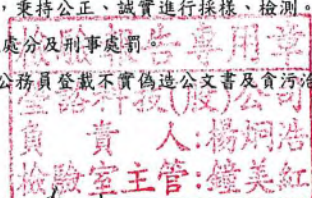 ，秉持公正、誠實進行採樣、檢測。
處分及刑事處罰。
公務員登載不實偽造公文書及貪污治
檢驗報告專用章
科技(股)公司
負責人:楊炯浩
檢驗室主管:鐘美紅